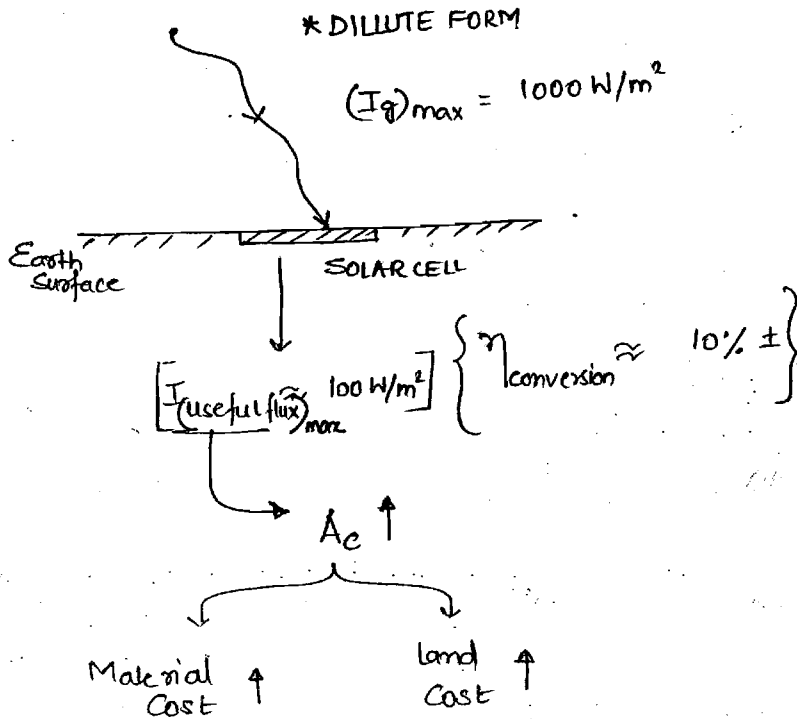 * DILLUTE FORM
(Ig)max = 1000 W/m²
Earth Surface
SOLAR CELL
[I(useful flux)max ≈ 100 W/m²] { η conversion ≈ 10% ± }
Ac ↑
Material Cost ↑
Land Cost ↑